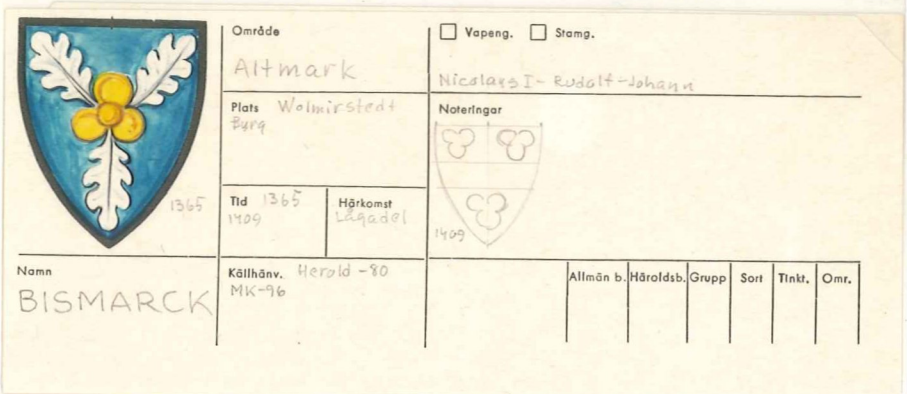 Område
Altmark
Plats Wolmirstedt
Burg
Tid 1365
1409
Härkomst
Lågadel
Källhänv. Herold -80
MK-96
1365
Namn
BISMARCK
Vapeng. Stamg.
Nicolaus I - Rudolf - Johann
Noteringar
1409
Allmän b. Häroldsb. Grupp Sort Tinkt. Omr.